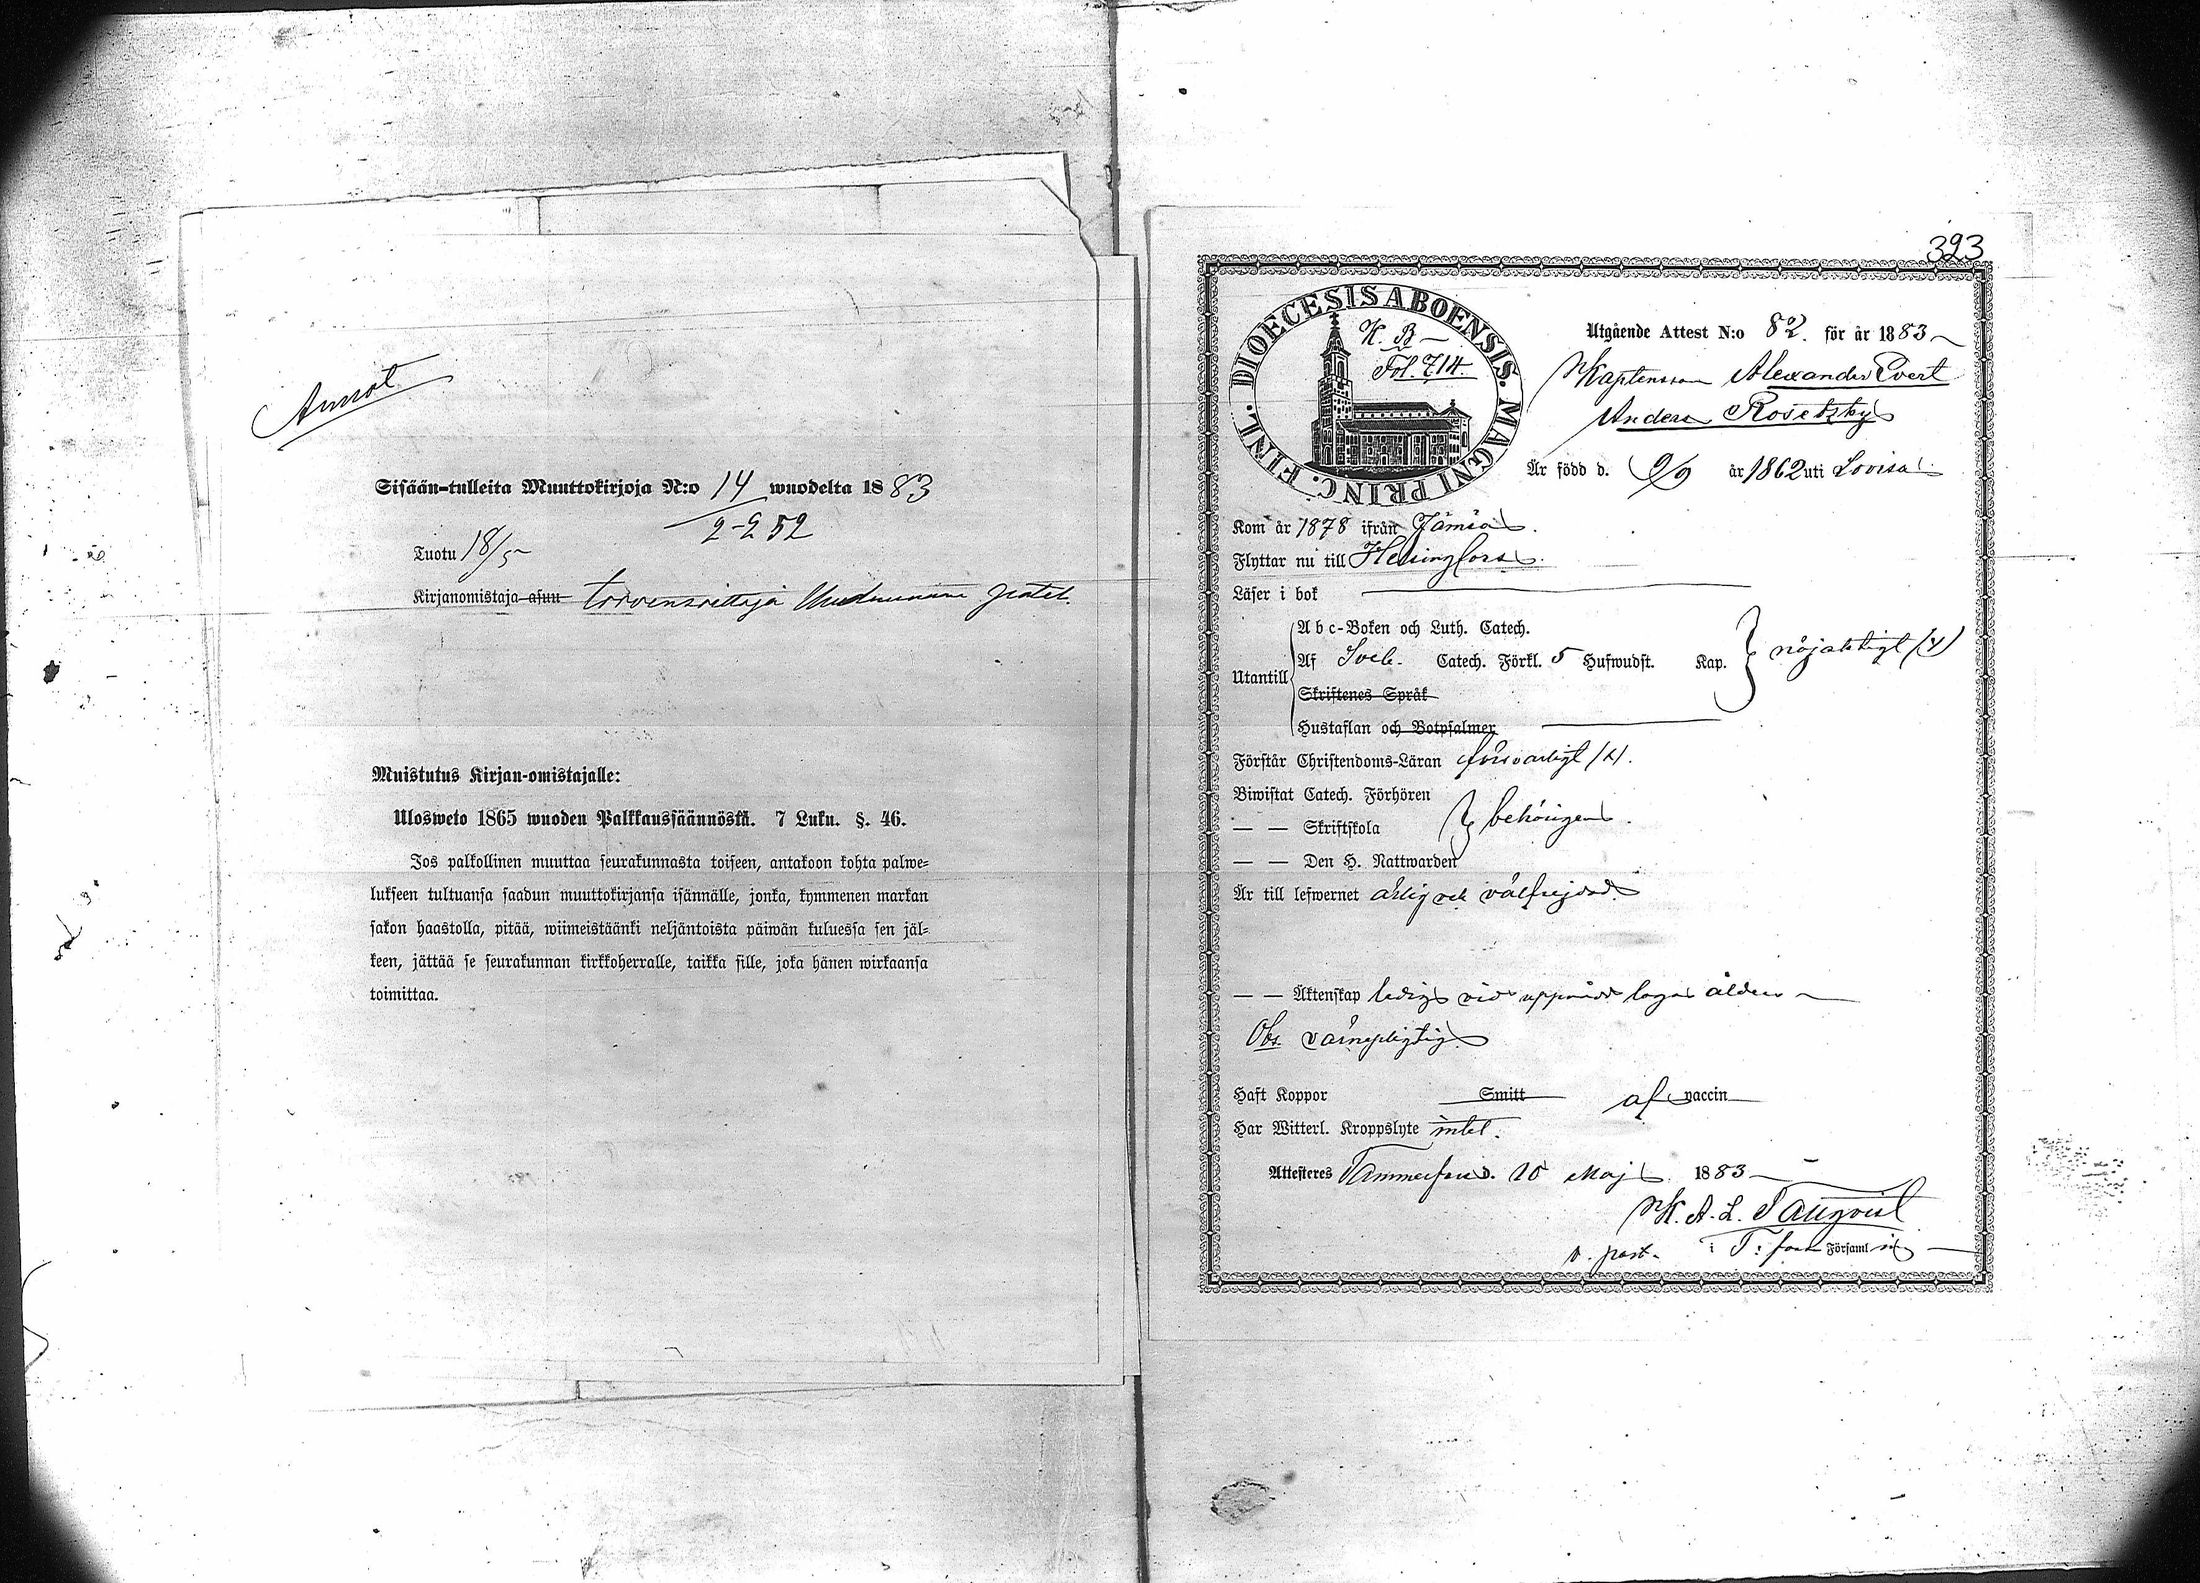 Annot
Sisään-tulleita Muuttokirjoja N:o 14 wuodelta 1883
2-252
Tuotu 18/5
Kirjanomistaja asuu torvensoittaja Uudenmaan patal.
Muistutus Kirjan-omistajalle:
Ulosweto 1865 wuoden Palkkaussäännöstä. 7 Luku. §. 46.
Jos palkollinen muuttaa seurakunnasta toiseen, antakoon kohta palwe-
lukseen tultuansa saadun muuttokirjansa isännälle, jonka, kymmenen markan
sakon haastolla, pitää, wiimeistäänki neljäntoista päiwän kuluessa sen jäl-
keen, jättää se seurakunnan kirkkoherralle, taikka sille, joka hänen wirkaansa
toimittaa.
393
DIOECESIS ABOENSIS. MAGNI PRINC. FINL.
K. B
Fol. 714.
Utgående Attest N:o 82. för år 1883
Kaptensson Alexander Evert
Anders Rosetzky
Är född d. 9/9 år 1862 uti Lovisa
Kom år 1878 ifrån Jämsä.
Flyttar nu till Helsingfors.
Läser i bok
Utantill
Abc-Boken och Luth. Catech.
Af Sveb. Catech. Förkl. 5 Hufwudst. Kap.
nöjaktigt
Skriftenes Språk
Hustaflan och Botpsalmer
Förstår Christendoms-Läran försvarligt
Biwistat Catech. Förhören
— — Skriftskola
behörigen.
— — Den H. Nattwarden
Är till lefwernet ärlig och välfrejdad.
— — Äktenskap ledig vid uppnådd laga ålder
Obs. värnepligtig
Haft Koppor Smitt af vaccin
Har Witterl. Kroppslyte intet.
Attesteres Tammerfors d. 15 Maj 1883
K. A. L. Tallqvist
v. past. i T:fors Församl